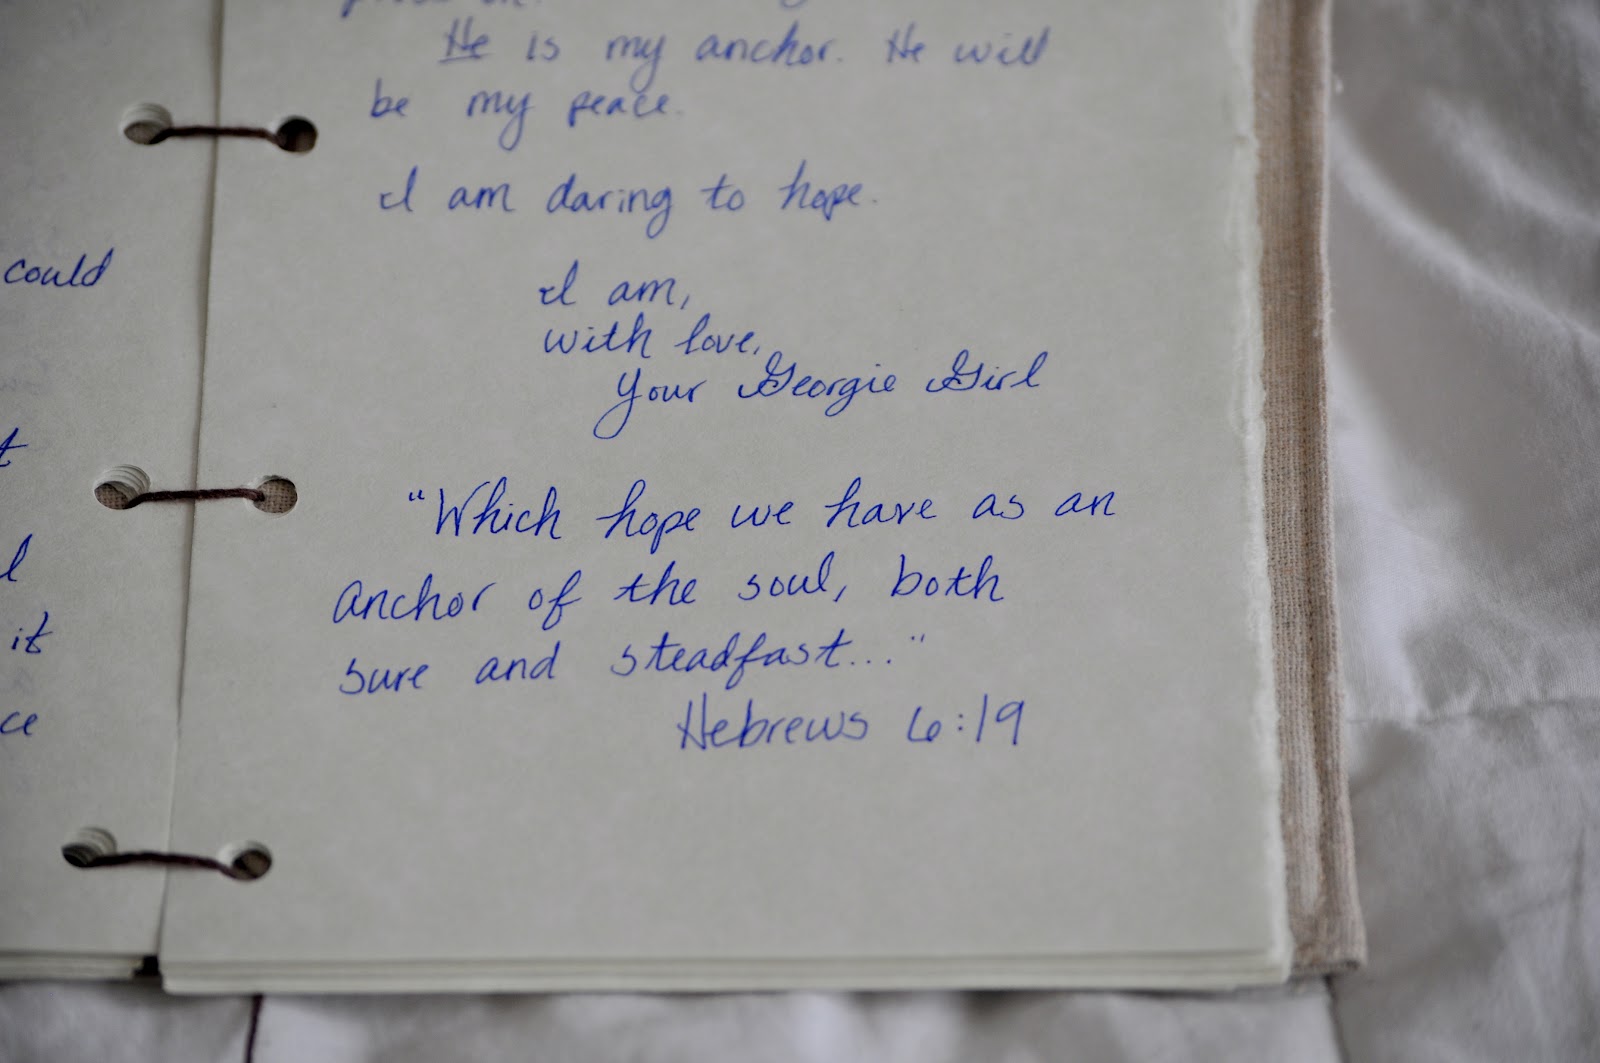 could
it
ce
He is my anchor. He will
be my peace.
I am daring to hope.
I am,
with love,
Your Georgie Girl
"Which hope we have as an
anchor of the soul, both
sure and steadfast..."
Hebrews 6:19